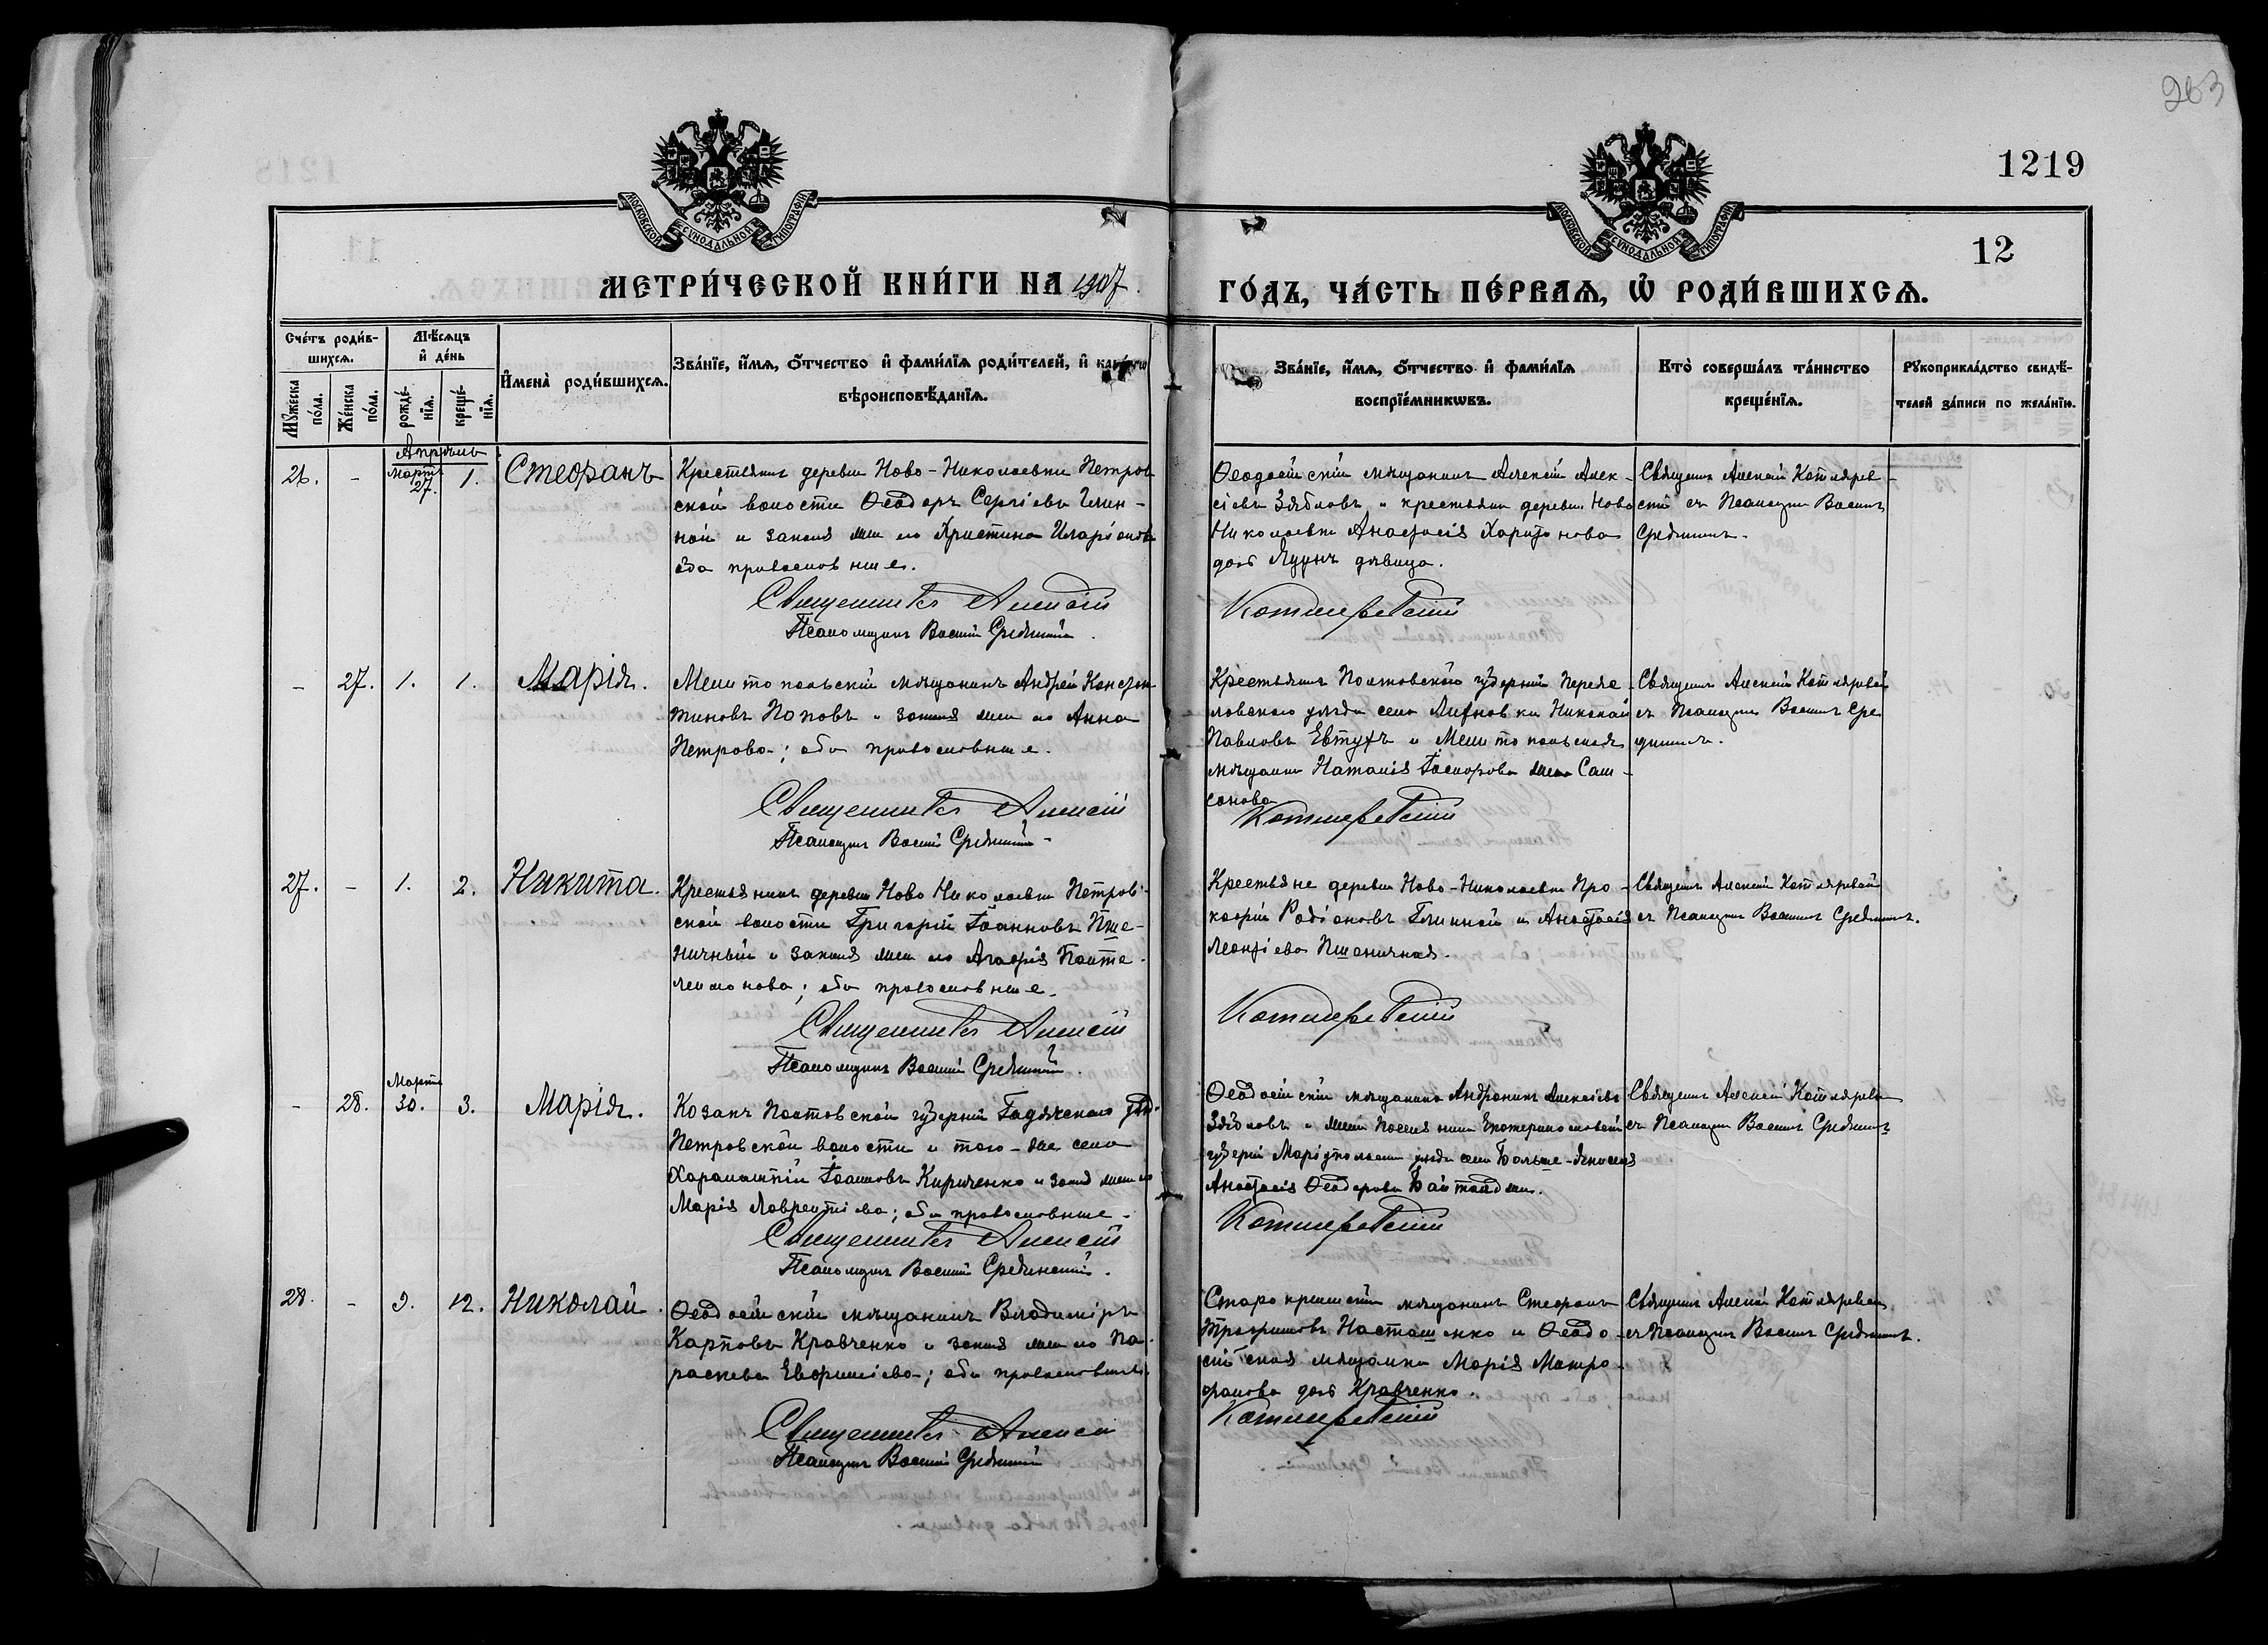 263
1219
12
МОСКОВСКОЙ СѴНОДАЛЬНОЙ ТИПОГРАФІИ
МОСКОВСКОЙ СѴНОДАЛЬНОЙ ТИПОГРАФІИ
МЕТРИ́ЧЕСКОЙ КНИ́ГИ НА 1907
ГО́ДЪ, ЧА́СТЬ ПЕ́РВАѦ, Ѡ҆ РОДИ́ВШИХСѦ.
Сче́тъ роди́в-
шихсѧ.
Мѣ́сѧцъ
и҆ де́нь
Мꙋ́жеска
по́ла.
Же́нска
по́ла.
рожде́-
нїѧ.
креще́-
нїѧ.
И҆мена̀ роди́вшихсѧ.
Зва́нїе, и҆́мѧ, ѻ҆́тчество и҆ фами́лїѧ роди́телей, и҆ како́гѡ
вѣроисповѣ́данїѧ.
Зва́нїе, и҆́мѧ, ѻ҆́тчество и҆ фами́лїѧ
воспрїе́мникѡвъ.
Кто̀ соверша́лъ та́инство
креще́нїѧ.
Рꙋкоприкла́дство свидѣ́-
телей за́писи по жела́нїю.
Апрѣль
26. - Мартъ 27. 1. Стефанъ
Крестьянинъ деревни Ново-Николаевки Петров
ской волости Ѳеодоръ Сергіевъ Глин-
ной и законная жена его Христина Иларіонова
оба православные.
Священникъ Алексій
Псаломщикъ Василій Срединскій.
Ѳеодосійскій мѣщанинъ Алексій Алек-
сіевъ Зябловъ и крестьянка деревни Ново
Николаевки Анастасія Харитонова
дочь дѣвица.
Котляревскій
Священникъ Алексій Котлярев-
скій съ Псаломщ. Василі.
Срединскимъ.
- 27. 1. 1. Марія.
Мелитопольскій мѣщанинъ Андрей Констан
тиновъ Поповъ и законная жена его Анна
Петрова; оба православные.
Священникъ Алексій
Псаломщикъ Василій Срединскій
Крестьянинъ Полтавской губерніи Переяс-
лавскаго уѣзда села Николай
Павловъ Евтухъ и Мелитопольская
мѣщанка Наталія жена Сам-
сонова
Котляревскій
Священникъ Алексій Котляревскій
съ Псаломщ. Василі. Сре
динскимъ.
27. - 1. 2. Никита.
Крестьянинъ деревни Ново Николаевки Петров-
ской волости Григорій Іоанновъ Пше-
ничный и законная жена его Агафія Панте-
леимонова; оба православные.
Священникъ Алексій
Псаломщикъ Василій Срединскій.
Крестьяне деревни Ново-Николаевки Про-
кофій Родіоновъ Глинной и Анастасія
Леонтіева Пшеничная.
Котляревскій
Священникъ Алексій Котляревскій
съ Псаломщ. Василі. Срединскимъ.
- 28. Мартъ 30. 3. Марія.
Козакъ Полтавской губерніи Гадячскаго уѣз.
Петровской волости и того-же села
Харалампій Іоанновъ Кириченко и закон. жена его
Марія Лаврентіева; оба православные.
Священникъ Алексій
Псаломщикъ Василій Срединскій.
Ѳеодосійскій мѣщанинъ Андроникъ Алексіевъ
Зябловъ и Екатеринославской
губерніи Маріупольскаго уѣзда села
Анастасія Ѳеодорова
Котляревскій
Священникъ Алексій Котляревскій
съ Псаломщ. Василі. Срединскимъ
28. - 9. 12. Николай.
Ѳеодосійскій мѣщанинъ Владиміръ
Карповъ Кравченко и законная жена его Па-
раскева Евфиміева; оба православные.
Священникъ Алексій
Псаломщикъ Василій Срединскій
Старокрымскій мѣщанинъ Стефанъ
Трофимовъ Насташенко и Ѳеодо-
сійская мѣщанка Марія Митро-
фанова дочь Кравченко.
Котляревскій
Священникъ Алексій Котляревскій
съ Псаломщ. Василі. Срединскимъ.